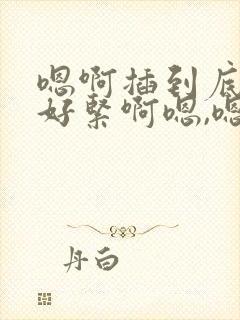 嗯啊插到底
好紧啊嗯,嗯
丹白